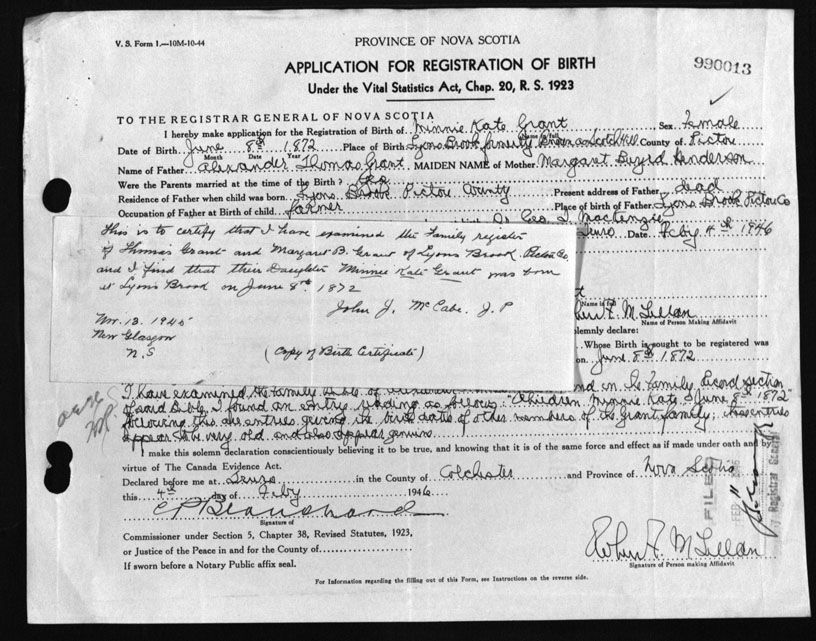 V. S. Form 1.—10M-10-44
PROVINCE OF NOVA SCOTIA
990013
APPLICATION FOR REGISTRATION OF BIRTH
Under the Vital Statistics Act, Chap. 20, R. S. 1923
TO THE REGISTRAR GENERAL OF NOVA SCOTIA
I hereby make application for the Registration of Birth of Minnie Kate Grant Sex Female
Name in full
Date of Birth June 8th 1872 Place of Birth Lyons Brook formerly Scotch Hill County of Pictou
Month Date Year
Name of Father Alexander Thomas Grant MAIDEN NAME of Mother Margaret Henderson
Were the Parents married at the time of the Birth? Yes Present address of Father dead
Residence of Father when child was born Lyons Brook Pictou County Place of birth of Father Lyons Brook Pictou Co
Occupation of Father at Birth of child farmer
Geo. Mackenzie
Truro Date Feby 4th 1946
This is to certify that I have examined the Family register
of Thomas Grant and Margaret B. Grant of Lyons Brook Pictou Co.
and I find that their Daughter Minnie Kate Grant was born
at Lyons Brook on June 8th 1872
John J. McCabe. J. P
Nov. 13. 1945
New Glasgow
N. S
(Copy of Birth Certificate)
McLellan
Name of Person Making Affidavit
lemnly declare:
Whose Birth is sought to be registered was
on June 8th 1872
I have examined the Family Bible of and in the Family Record section
of said Bible, I found an entry reading as follows "Children, Minnie Kate, June 8th 1872"
following this are entries giving the birth dates of other members of the Grant family; these entries
appear to be very old and also appear genuine
I make this solemn declaration conscientiously believing it to be true, and knowing that it is of the same force and effect as if made under oath and by
virtue of The Canada Evidence Act.
Declared before me at Truro in the County of Colchester and Province of Nova Scotia
this 4th day of Feby 1946
C P Blanchard
Signature of
Commissioner under Section 5, Chapter 38, Revised Statutes, 1923,
or Justice of the Peace in and for the County of
If sworn before a Notary Public affix seal.
McLellan
Signature of Person making Affidavit
FILED
FEB 11
Registrar General
For Information regarding the filling out of this Form, see Instructions on the reverse side.